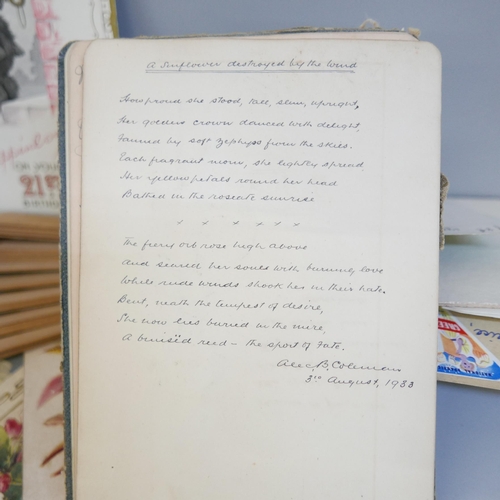 A Sunflower destroyed by the Wind
How proud she stood, tall, slim, upright,
Her golden crown danced with delight,
Fanned by soft zephyrs from the skies.
Each fragrant morn, she lightly spread
Her yellow petals round her head
Bathed in the roseate sunrise
x x x x x x
The fiery orb rose high above
And seared her souls with burning love
While rude winds shook her in their hate.
Bent, neath the tempest of desire,
She now lies buried in the mire,
A bruisëd reed - the sport of Fate.
Alec. B. Coleman
3rd August, 1933
21st
BIRTHDAY